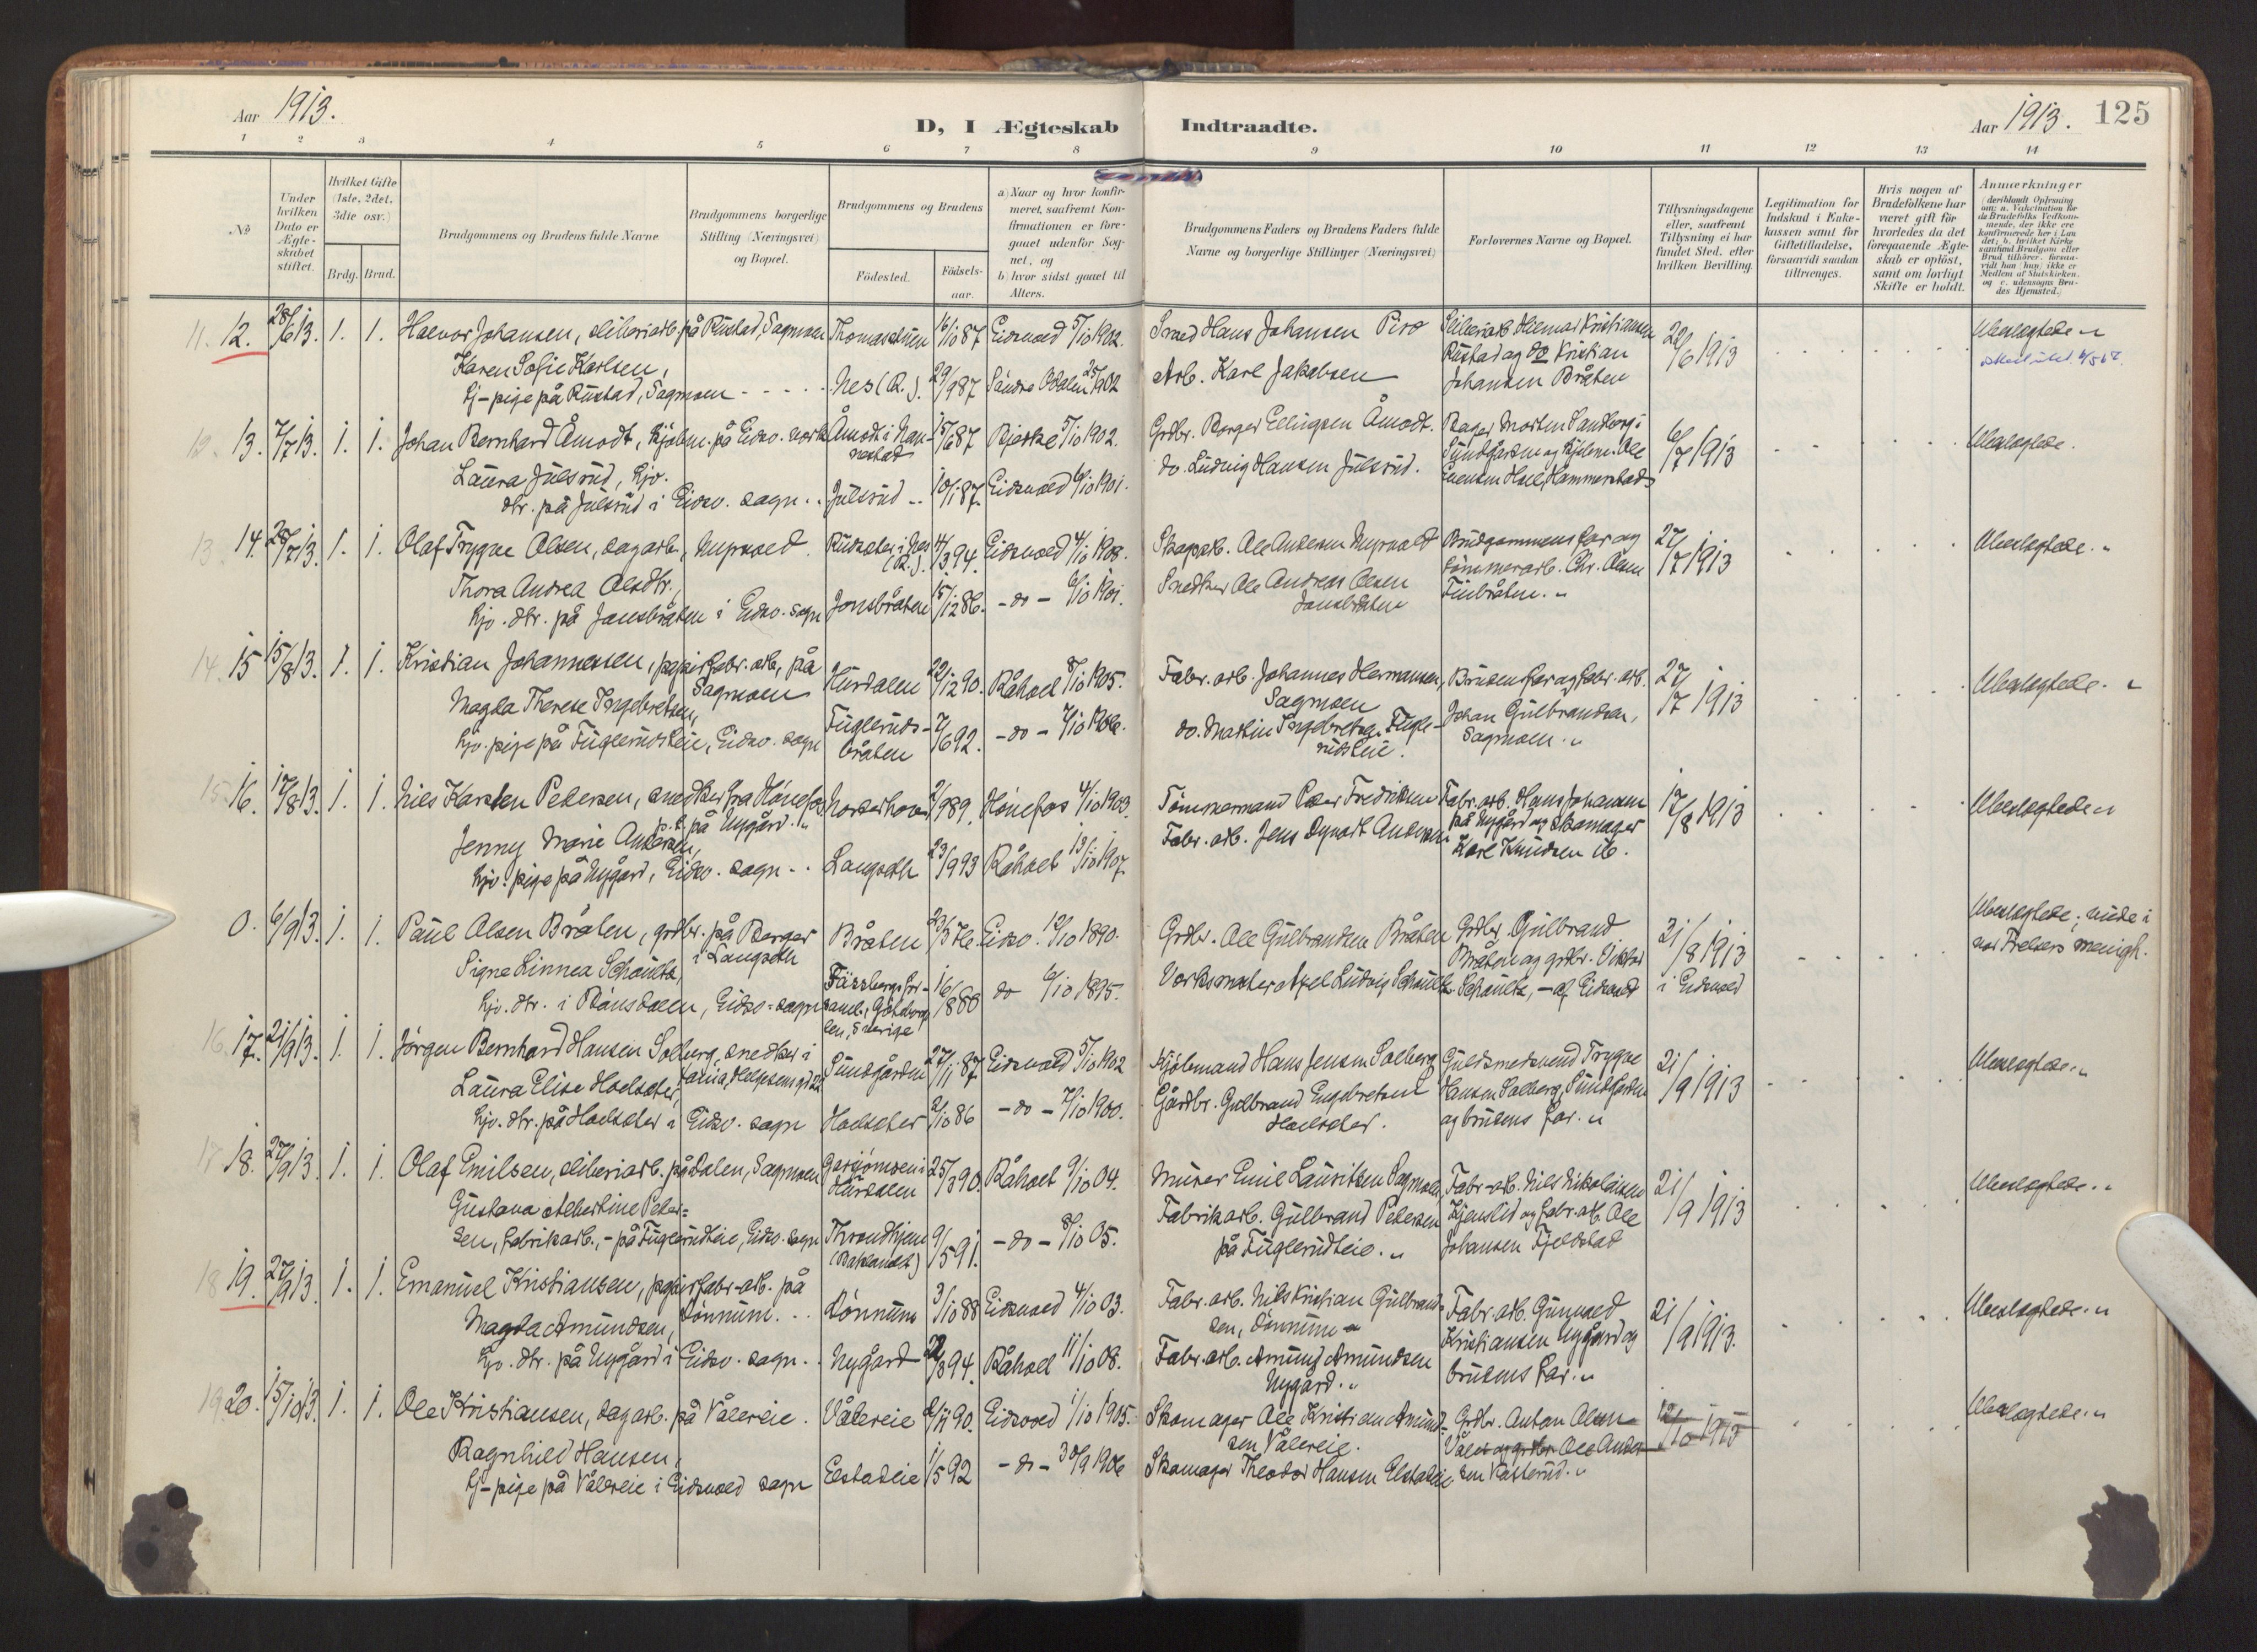 Aar 1913.
D, I Ægteskab
Indtraadte.
Aar 1913. 125
1 2 3 4 5 6 7 8 9 10 11 12 13 14
№
Under hvilken Dato er Ægteskabet stiftet.
Hvilket Gifte (1ste, 2det, 3die osv.)
Brdg. Brud.
Brudgommens og Brudens fulde Navne
Brudgommens borgerlige Stilling (Næringsvei) og Bopæl.
Brudgommens og Brudens
Födested.
Födsels-aar.
a) Naar og hvor konfirmeret, saafremt Konfirmationen er foregaaet udenfor Sognet, og
b) hvor sidst gaaet til Alters.
Brudgommens Faders og Brudens Faders fulde Navne og borgerlige Stillinger (Næringsvei)
Forlovernes Navne og Bopæl.
Tillysningsdagene eller, saafremt Tillysning ei har fundet Sted, efter hvilken Bevilling.
Legitimation for Indskud i Enkekassen samt for Giftetilladelse, forsaavidt saadan tiltrænges.
Hvis nogen af Brudefolkene har været gift för hvorledes da det foregaaende Ægteskab er oplöst, samt om lovligt Skifte er holdt.
Anmærkninger
11. 12. 28/6 13. 1. 1. Halvor Johansen, sliberiarb. på Rustad, Sagmoen Thomasstuen 16/10 87 Eidsvold 5/10 1902. Smed Hans Johansen Piro Sliberiarb. Hilemar Kristiansen 22/6 1913 Ubeslegtede "
Karen Sofie Karlsen, Rustad og do Kristian
tj-pige på Rustad, Sagmoen Nes (R.). 29/9 87 Söndre Odalen 25/9 02 Arb. Karl Jakobsen Johansen Bråten
12. 13. 7/7 13. 1. 1. Johan Bernhard Åmodt, hjólm. på Eidsv. verk Åmodt i Nannestad 15/6 87 Bjerke 5/10 1902. Grdbr. Borger Ellingsen Åmodt. Bager Morten Sandberg i 6/7 1913 Ubeslegtede.
Laura Julsrud, hjv. do. Ludvig Hansen Julsrud. Sundgården og hjulm. Ole
dtr. på Julsrud i Eidsv. sogn Julsrud 10/1 87. Eidsvold 6/10 1901. Evensen Hoel, Hammerstad
13. 14. 28/7 13. 1. 1. Olaf Trygve Olsen, sagarb., Myrvold. Rudseter i Nes (R.). 4/3 94. Eidsvold 4/10 1908. Skogarb. Ole Andersen Myrvold Brudgommens far og 27/7 1913 Ubeslegtede. "
Thora Andrea Olsdtr., Snedker Ole Andreas Olsen tömmerarb. Chr. Olsen
hjv. dtr. på Jonsbråten i Eidsv. sogn Jonsbråten 15/12 86. - do - 6/10 1901. Jonsbråten
14. 15 15/8 13. 1. 1. Kristian Johannesen, papirfabr. arb., på Sagmoen Hurdalen 22/12 90. Råholt 8/10 1905. Fabr. arb. Johannes Hermansen, Sagmoen Brudens far og fabr. arb. 27/7 1913 Ubeslegtede. "
Magda Therese Ingebretsen, Johan Gulbrandsen,
hjv. pige på Fuglerudseie, Eidsv. sogn Fuglerudsbråten 7/6 92. - do - 7/10 1906. do. Martin Ingebretsen Fuglerudseie. Sagmoen. "
15. 16. 17/8 13. 1. 1. Nils Karsten Petersen, snedker fra Hönefos, p.t. på Nygård. " Norderhov 2/9 89. Hönefos 4/10 1903. Tömmermand Peter Fredriksen Fabr. arb. Hans Johansen 17/8 1913 Ubeslegtede "
Jenny Marie Andersen, Fabr. arb. Jens Dynart Andersen på Nygård og skomager
hjv. pige på Nygård, Eidsv. sogn Langseth 23/9 93 Råholt 13/10 1907 Karl Knudsen ib.
0. 6/9 13. 1. 1. Paul Olsen Bråten, grdbr. på Borger i Langseth Bråten 23/3 76 Eidsv. 12/10 1890. Grdbr. Ole Gulbrandsen Bråten Grdbr. Gulbrand 31/8 1913 i Eidsvold Ubeslegtede; viede i vor Frelsers menigh.
Signe Linnea Schoultz, Bråten og grdbr. Viktor
hjv. dtr. i Rånsdalen, Eidsv. sogn Fässbergs forsaml., Göteborgs len, Sverige 16/1 880 do 6/10 1895. Verksmester Axel Ludvig Schoultz Schoultz, - af Eidsvold
16. 17. 21/9 13. 1. 1. Jörgen Bernhard Hansen Solberg, snedker i Sundgården 27/11 87 Eidsvold 5/10 1902 Hjólmand Hans Jensen Solberg Guldsmedsvend Trygve 21/9 1913 Ubeslegtede. "
Laura Elise Hoelseter, Gårdbr. Gulbrand Engebretsen Hansen Solberg, Sundgården
hjv. dtr. på Hoelseter i Eidsv. sogn Hoelseter 2/10 86 - do - 7/10 1900. Hoelseter. og brudens far. "
17 18. 27/9 13. 1. 1. Olaf Emilsen, sliberiarb. på Dalen, Sagmoen Garsjömoen i Hurdalen 25/3 90. Råholt 9/10 04. Murer Emil Lauritsen Sagmoen Fabr-arb. Nils Nikolaisen 21/9 1913 Ubeslegtede. "
Gustava Albertine Peter- Fabrikarb. Gulbrand Petersen Hjenslid og fabr. arb. Ole
sen, fabrikarb., - på Fuglerudseie, Eidsv. sogn Throndhjem (Baklandet) 9/5 91. - do - 8/10 05. på Fuglerudseie. " Johansen Fjeldstad
18 19. 27/9 13. 1. 1. Emanuel Kristiansen, papirfabr-arb. på Dönnum Dönnum 3/10 88 Eidsvold 4/10 03. Fabr. arb. Nils Kristian Gulbrandsen, Dönnum Fabr. arb. Gunvald 21/9 1913. Ubeslegtede. "
Magda Amundsen, Kristiansen Nygård og
hjv. dtr. på Nygård i Eidsv. sogn Nygård 94. Råholt 11/10 08. Fabr. arb. Amund Amundsen Nygård. " brudens far. "
19 20. 15/10 13. 1. 1. Ole Kristiansen, sagarb. på Vålereie. Vålereie 2/11 90. Eidsvold 1/10 1905. Skomager Ole Kristian Amundsen Vålereie. Grdbr. Anton Olsen 12/10 1913 Ubeslegtede. "
Ragnhild Hansen, Våler og grdbr. Ole Ander-
tj-pige på Vålereie i Eidsvold sogn Elstadeie 1/5 92 - do - 30/9 1906 Skomager Theodor Hansen Elstadeie